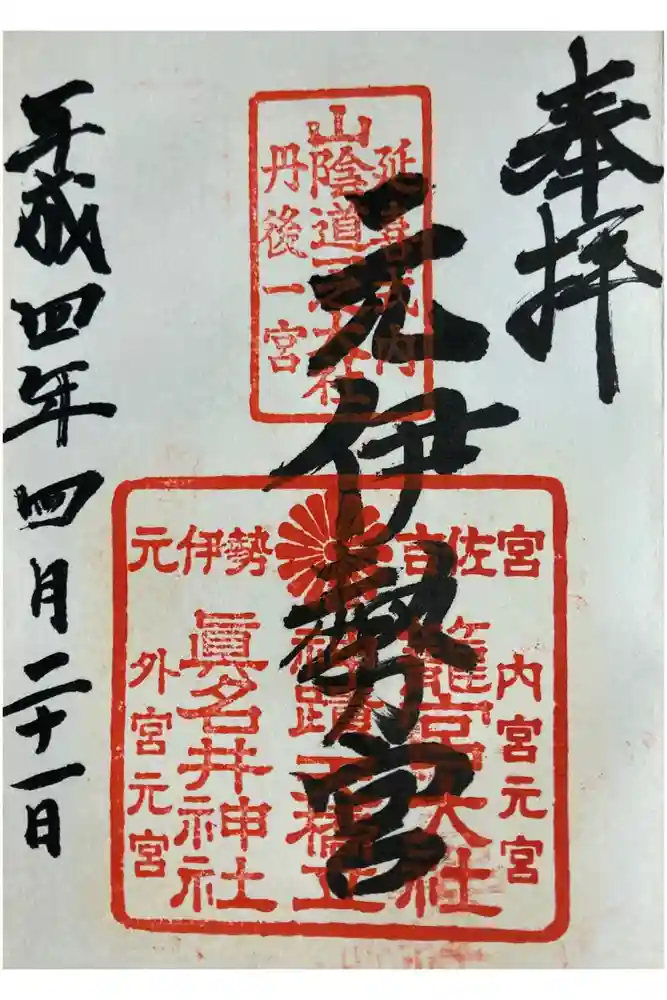 奉拝
延喜式内
山陰道一之大社
丹後一宮
元伊勢宮
元伊勢
吉佐宮
内宮元宮
籠宮大社
神蹟天橋立
眞名井神社
外宮元宮
平成四年四月二十一日